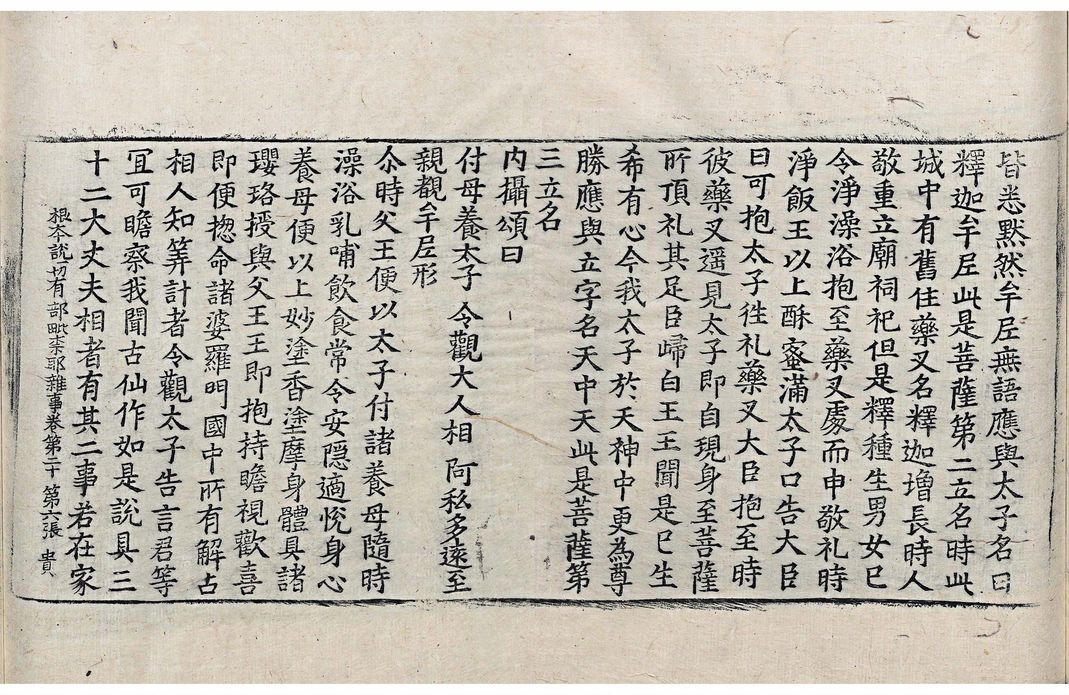 皆悉黙然牟尼無語應與太子名曰
釋迦牟尼此是菩薩第二立名時此
城中有舊住藥叉名釋迦增長時人
敬重立廟祠祀但是釋種生男女已
令淨澡浴抱至藥叉處而申敬礼時
淨飯王以上酥蜜滿太子口告大臣
曰可抱太子徃礼藥叉大臣抱至時
彼藥叉遥見太子即自現身至菩薩
所頂礼其足臣歸白王王聞是已生
希有心今我太子於天神中更為尊
勝應與立字名天中天此是菩薩第
三立名
内攝頌曰
付母養太子 令觀大人相 阿私多遠至
親觀牟尼形
尒時父王便以太子付諸養母隨時
澡浴乳哺飲食常令安隠適悅身心
養母便以上妙塗香塗摩身體具諸
瓔珞授與父王王即抱持瞻視歡喜
即便揔命諸婆羅門國中所有解占
相人知筭計者令觀太子告言君等
冝可瞻察我聞古仙作如是說具三
十二大丈夫相者有其二事若在家
根本說一切有部毗柰耶雜事卷第二十 第六張 貴